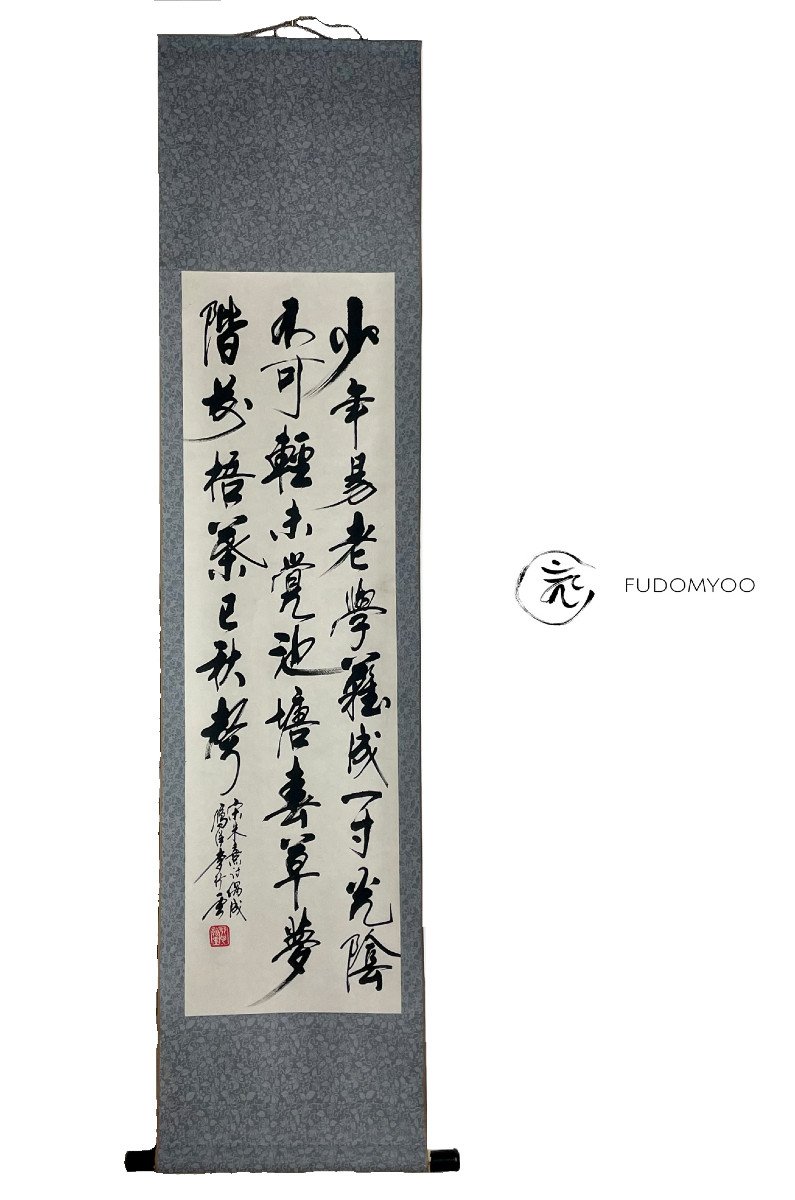 少年易老學難成一寸光陰
不可輕未覺池塘春草夢
階前梧葉已秋聲
宋朱熹詩偶成
FUDOMYOO